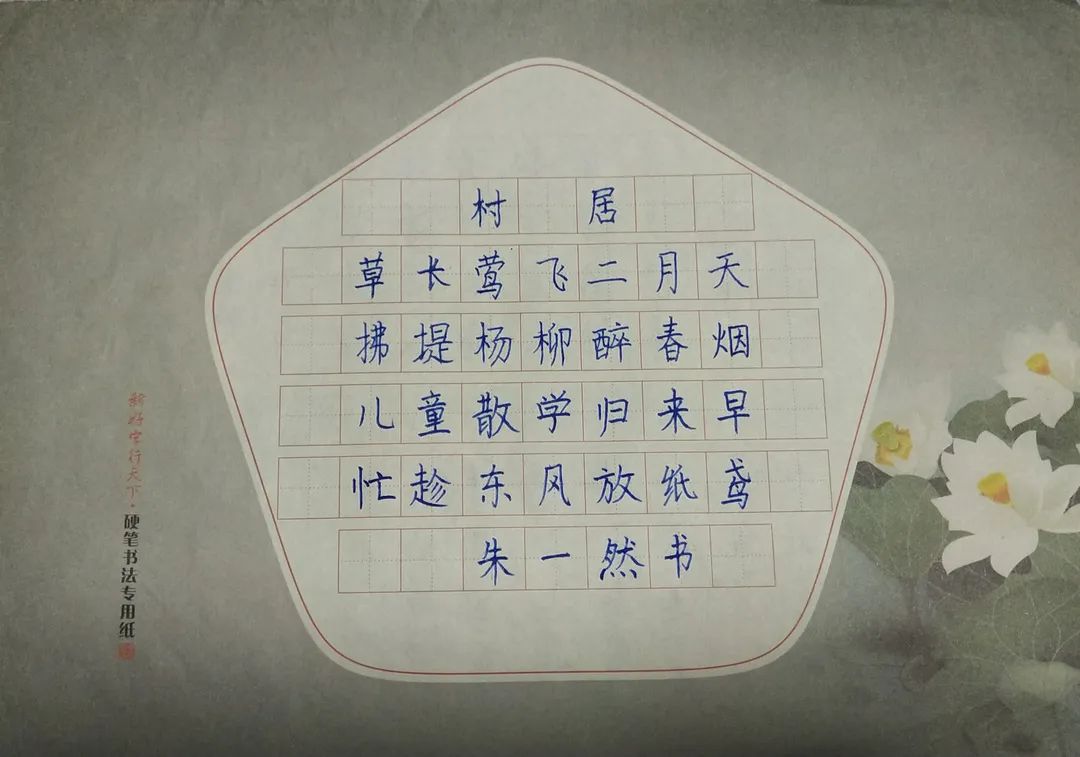 村居
草长莺飞二月天
拂堤杨柳醉春烟
儿童散学归来早
忙趁东风放纸鸢
朱一然书
好字行天下·硬笔书法专用纸